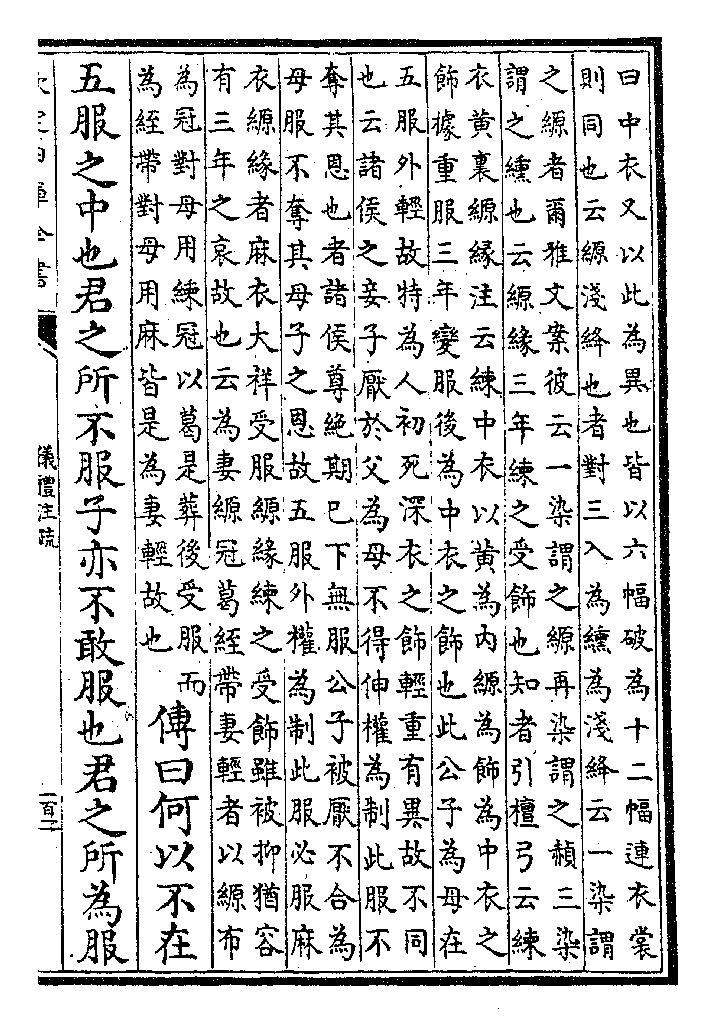 曰中衣又以此為異也皆以六幅破為十二幅連衣裳
則同也云縓淺絳也者對三入為纁為淺絳云一染謂
之縓者爾雅文案彼云一染謂之縓再染謂之赬三染
謂之纁也云縓緣三年練之受飾也知者引檀弓云練
衣黃裏縓緣注云練中衣以黃為內縓為飾為中衣之
飾據重服三年變服後為中衣之飾也此公子為母在
五服外輕故特為人初死深衣之飾輕重有異故不同
也云諸侯之妾子厭於父為母不得伸權為制此服不
奪其恩也者諸侯尊絶期已下無服公子被厭不合為
母服不奪其母子之恩故五服外權為制此服必服麻
衣縓緣者麻衣大祥受服縓緣練之受飾雖被抑猶容
有三年之哀故也云為妻縓冠葛絰帶妻輕者以縓布
為冠對母用練冠以葛是葬後受服而
為絰帶對母用麻皆是為妻輕故也
傳曰何以不在
五服之中也君之所不服子亦不敢服也君之所為服
儀禮注疏